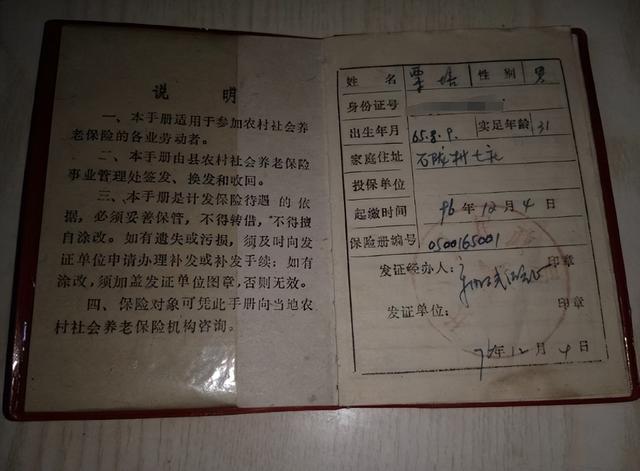 说 明
一、本手册适用于参加农村社会养
老保险的各业劳动者。
二、本手册由县农村社会养老保险
事业管理处签发、换发和收回。
三、本手册是计发保险待遇的依
据，必须妥善保管，不得转借，不得擅
自涂改。如有遗失或污损，须及时向发
证单位申请办理补发或补发手续；如有
涂改，须加盖发证单位图章，否则无效。
四、保险对象可凭此手册向当地农
村社会养老保险机构咨询。
姓 名 栗培 性 别 男
身份证号
出生年月 65.8.9. 实足年龄 31
家庭住址 石陇村七社
投保单位
起缴时间 96年12月4日
保险册编号 0500165001
发证经办人： 印章
发证单位： 印章
96年12月4日